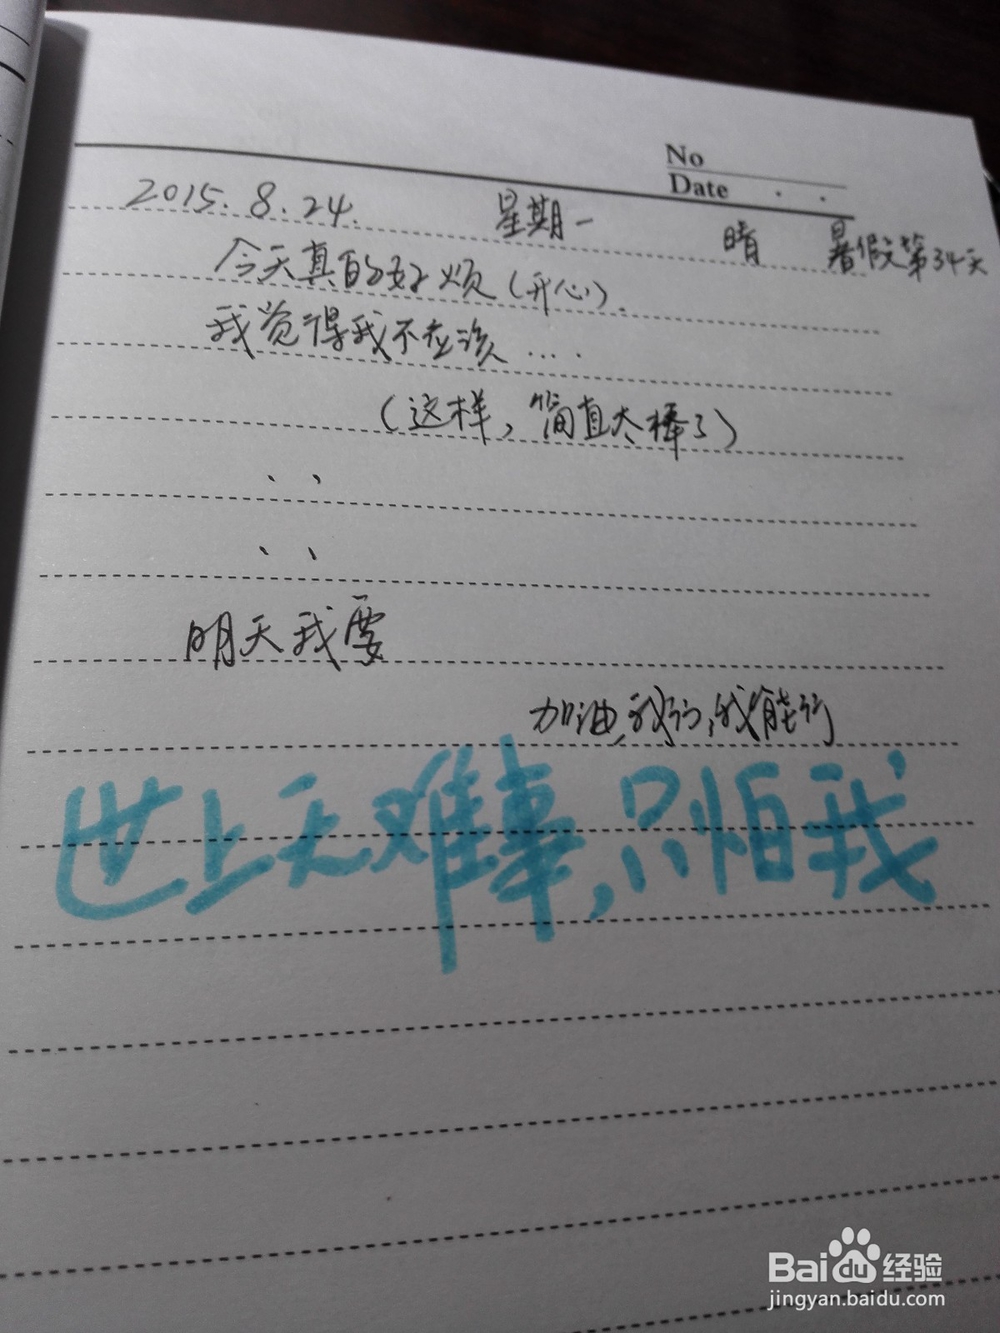 No
Date . .
2015.8.24. 星期一 晴 暑假第34天
今天真的好烦(开心).
我觉得我不应该....
(这样,简直太棒了)
、、
、、
明天我要
加油,我行,我能行
世上无难事,只怕我
Baidu经验
jingyan.baidu.com